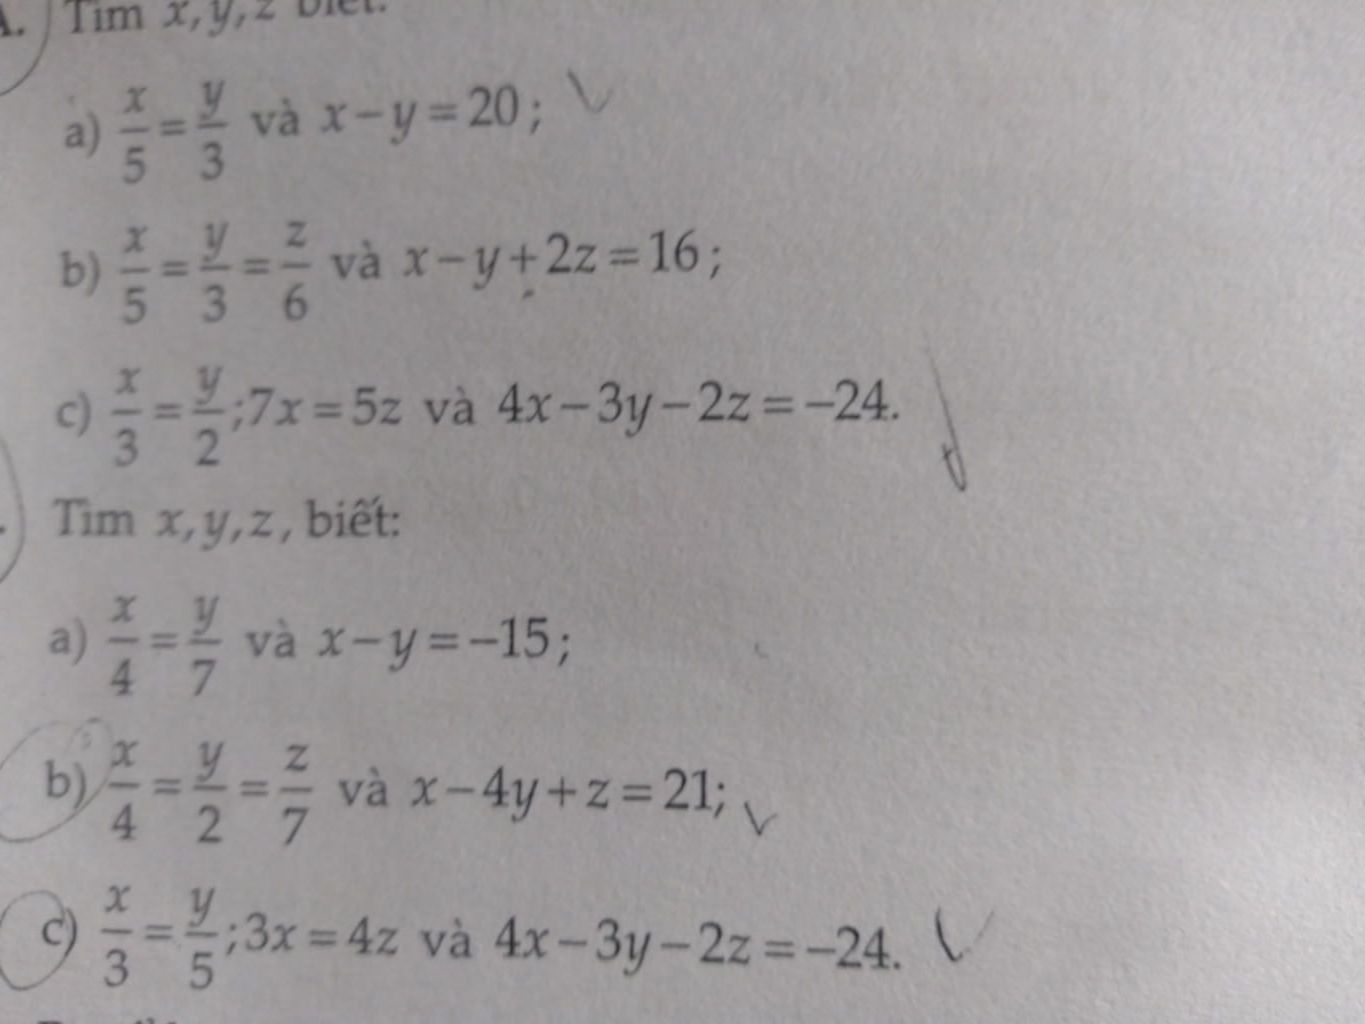 Tìm x, y, z biết:
a) x/5 = y/3 và x − y = 20;
b) x/5 = y/3 = z/6 và x − y + 2z = 16;
c) x/3 = y/2; 7x = 5z và 4x − 3y − 2z = −24.
Tìm x, y, z, biết:
a) x/4 = y/7 và x − y = −15;
b) x/4 = y/2 = z/7 và x − 4y + z = 21;
c) x/3 = y/5; 3x = 4z và 4x − 3y − 2z = −24.